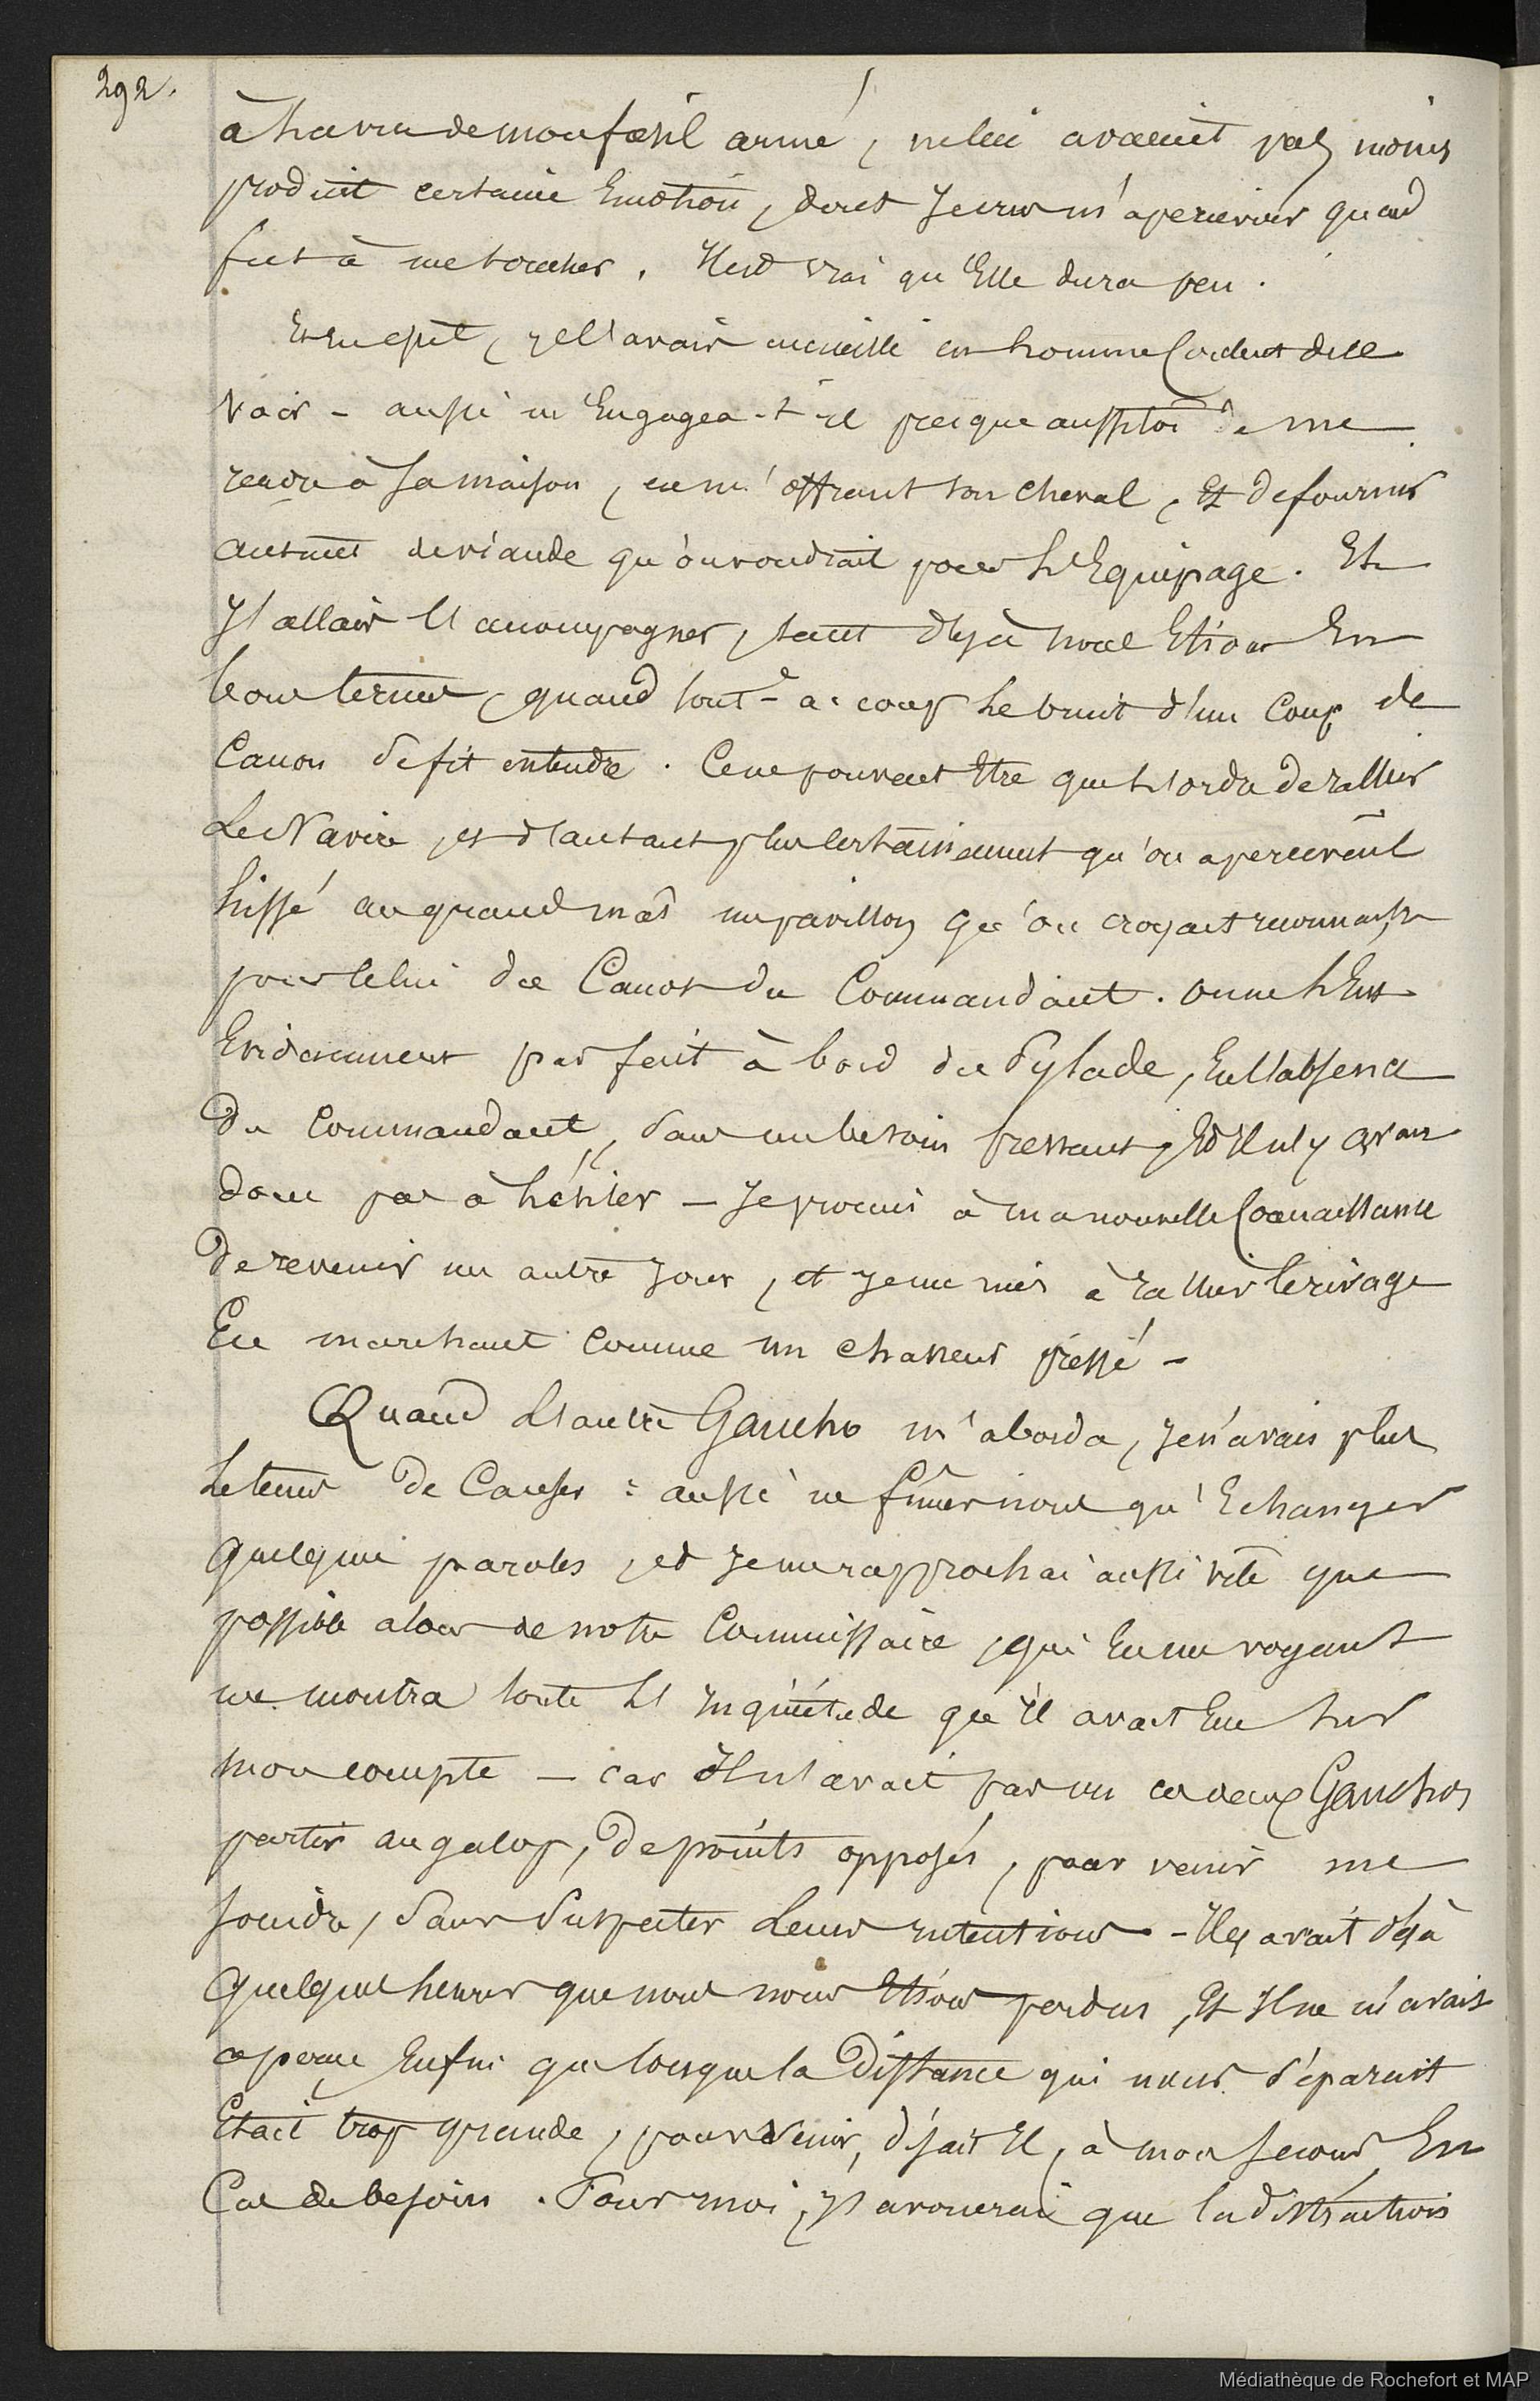 292.
à la vue de mon fusil armé, ne lui avaient pas moins
produit certaine Emotion, dont Je crus m'apercevoir quand
fut à me toucher. Il est vrai qu'Elle dura peu.
Et en effet, je l'avais accueilli en homme Content de le
voir - aussi m'Engagea-t-il presque aussitôt de me
rendre à sa maison, en m'offrant son cheval, Et de fournir
autant de viande qu'on voudrait pour l'Equipage. Et
J'allais l'accompagner, tant déjà nous Etions En
bons termes, quand tout-à-coup le bruit d'un Coup de
Canon se fit entendre. Ce ne pouvait Etre que l'ordre de rallier
Le Navire, et d'autant plus certainement qu'on apercevait
hissé au grand mât un pavillon qu'on croyait reconnaitre
pour celui du Canot du Commandant. on ne l'Eut
Evidemment pas fait à bord du Pylade, En l'absence
Du Commandant, sans un besoin pressant, Et Il n'y avait
donc pas à hésiter — Je promis à ma nouvelle Connaissance
De revenir un autre Jour, et Je me mis à rallier le rivage
En marchant comme un chasseur pressé -
Quand L'autre Gaucho m'aborda, Je n'avais plus
Le tems De Causer : aussi ne fîmes nous qu'Echanger
Quelques paroles, et Je me rapprochai aussi vite que
possible alors de notre Commissaire, qui En me voyant
me montra toute l'Inquiétude qu'il avait Eue sur
mon compte — car Il n'avait pas vu ces deux Gauchos
partir au galop, De points opposés, pour venir me
Joindre, Sans Suspecter Leurs intentions - Il y avait déjà
Quelques heures que nous nous Etions perdus, Et Il ne m'avait
aperçu Enfin que lorsque la Distance qui nous séparait
Etait trop grande, pour venir, disait Il, à mon secours En
Cas de besoin. Pour moi, J'avouerai que la distraction
Médiathèque de Rochefort et MAP